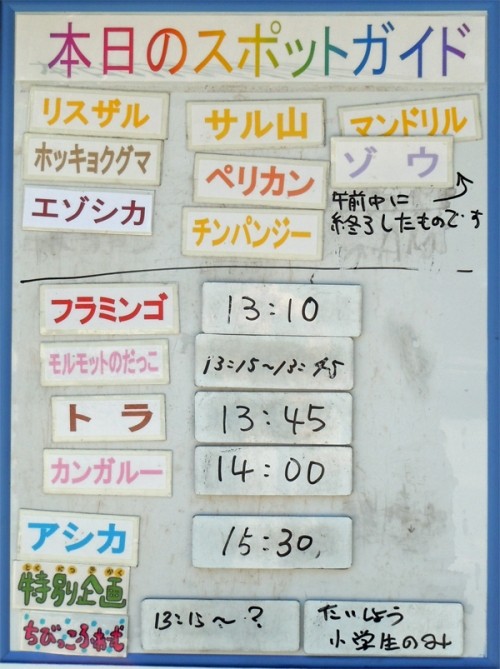 本日のスポットガイド
リスザル サル山 マンドリル
ホッキョクグマ ペリカン ゾウ
エゾシカ チンパンジー
午前中に
終了したものです
フラミンゴ 13:10
モルモットのだっこ 13:15~13:45
トラ 13:45
カンガルー 14:00
アシカ 15:30
とくべつきかく
特別企画
13:15~? たいしょう
小学生のみ